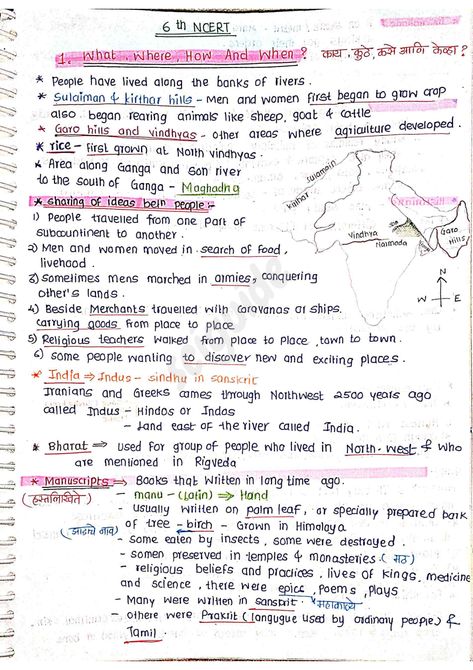 6th NCERT
1. What, Where, How And When? काय, कुठे, कसे आणि केव्हा?
* People have lived along the banks of rivers.
* Sulaiman & kirthar hills - Men and women first began to grow crop
also began rearing animals like sheep, goat & cattle
* Garo hills and vindhyas - other areas where agriculture developed.
* rice - first grown at North vindhyas.
* Area along Ganga and son river
to the south of Ganga - Maghadha
* sharing of ideas betn people:-
1) People travelled from one part of
subcountinent to another.
2) Men and women moved in search of food,
livehood.
3) Sometimes mens marched in armies, conquering
other's lands.
4) Beside Merchants travelled with caravanas or ships.
carrying goods from place to place
5) Religious teachers walked from place to place, town to town.
6) some people wanting to discover new and exciting places.
kirthar
sulaiman
Vindhya
Narmada
Garo
Hills
N
W
E
* India ⇒ Indus - sindhu in sanskrit
Iranians and Greeks cames through Northwest 2500 years ago
called Indus - Hindos or Indos
- Land east of the river called India.
* Bharat ⇒ Used for group of people who lived in North-west & who
are mentioned in Rigveda
* Manuscripts → Books that written in long time ago.
(हस्तलिखिते)
- manu - (Latin) ⇒ Hand
- Usually written on palm leaf, or specially prepared bark
of tree - birch - Grown in Himalaya
(झाडाचे नाव)
- some eaten by insects, some were destroyed.
- somen preserved in temples & monasteries. (मठ)
- religious beliefs and practices, lives of kings, medicine
and science, there were epics, poems, plays
- Many were written in sanskrit. महाकाव्ये
- others were Prakrit (langugue used by ordinary people) &
Tamil